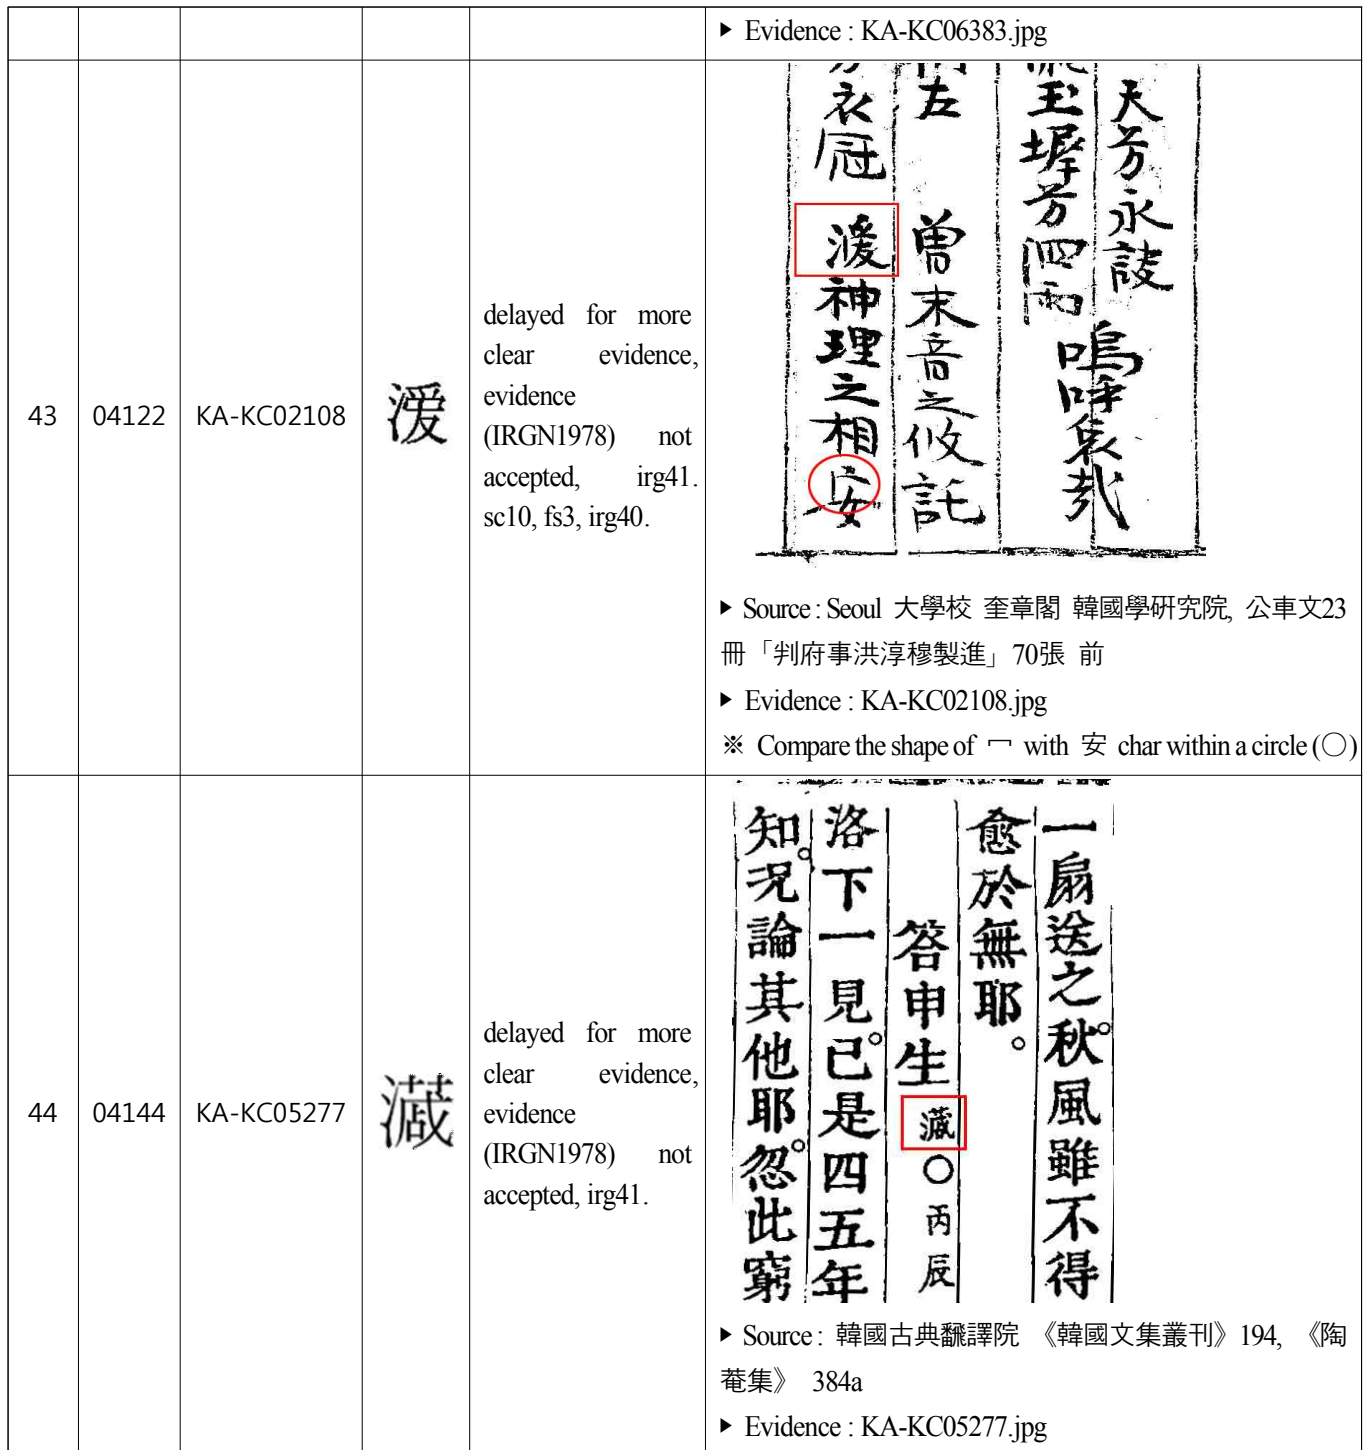 ▶ Evidence : KA-KC06383.jpg
43
04122
KA-KC02108
delayed for more
clear evidence,
evidence
(IRGN1978) not
accepted, irg41.
sc10, fs3, irg40.
天兮永諼
玉墀兮泗雨
嗚呼哀哉
左 曾末音之攸託
衣冠 神理之相安
▶ Source : Seoul 大學校 奎章閣 韓國學硏究院, 公車文23
冊「判府事洪淳穆製進」70張 前
▶ Evidence : KA-KC02108.jpg
※ Compare the shape of 冖 with 安 char within a circle (○)
44
04144
KA-KC05277
delayed for more
clear evidence,
evidence
(IRGN1978) not
accepted, irg41.
一扇送之秋。風雖不得
愈於無耶。
答申生 ○丙辰
洛下一見。已是四五年
知。況論其他耶。忽此窮
▶ Source : 韓國古典飜譯院 《韓國文集叢刊》194, 《陶
菴集》 384a
▶ Evidence : KA-KC05277.jpg